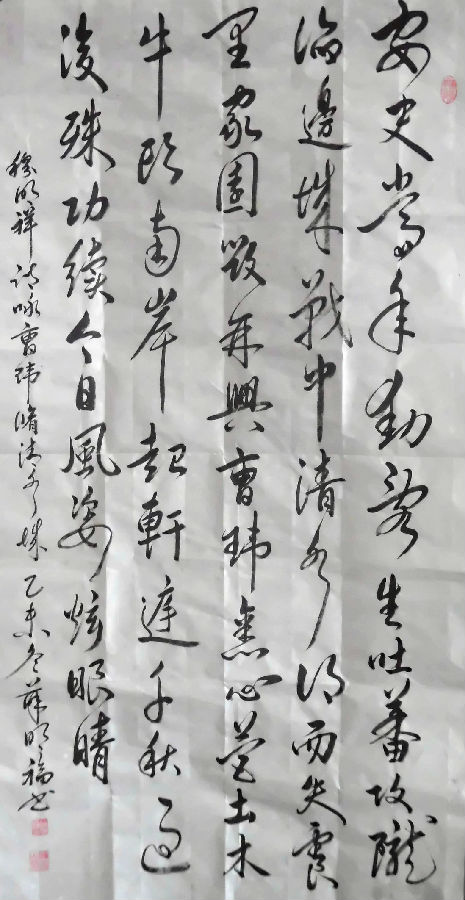 安史当年动苍生吐蕃攻陇
临边城战中清水得而失震
里家园毁再興曹玮悉心营土木
牛頭南岸起軒庭千秋过
後殊功續今日風姿炫眼睛
穆明祥诗咏曹玮修清水城乙未冬薛明福书